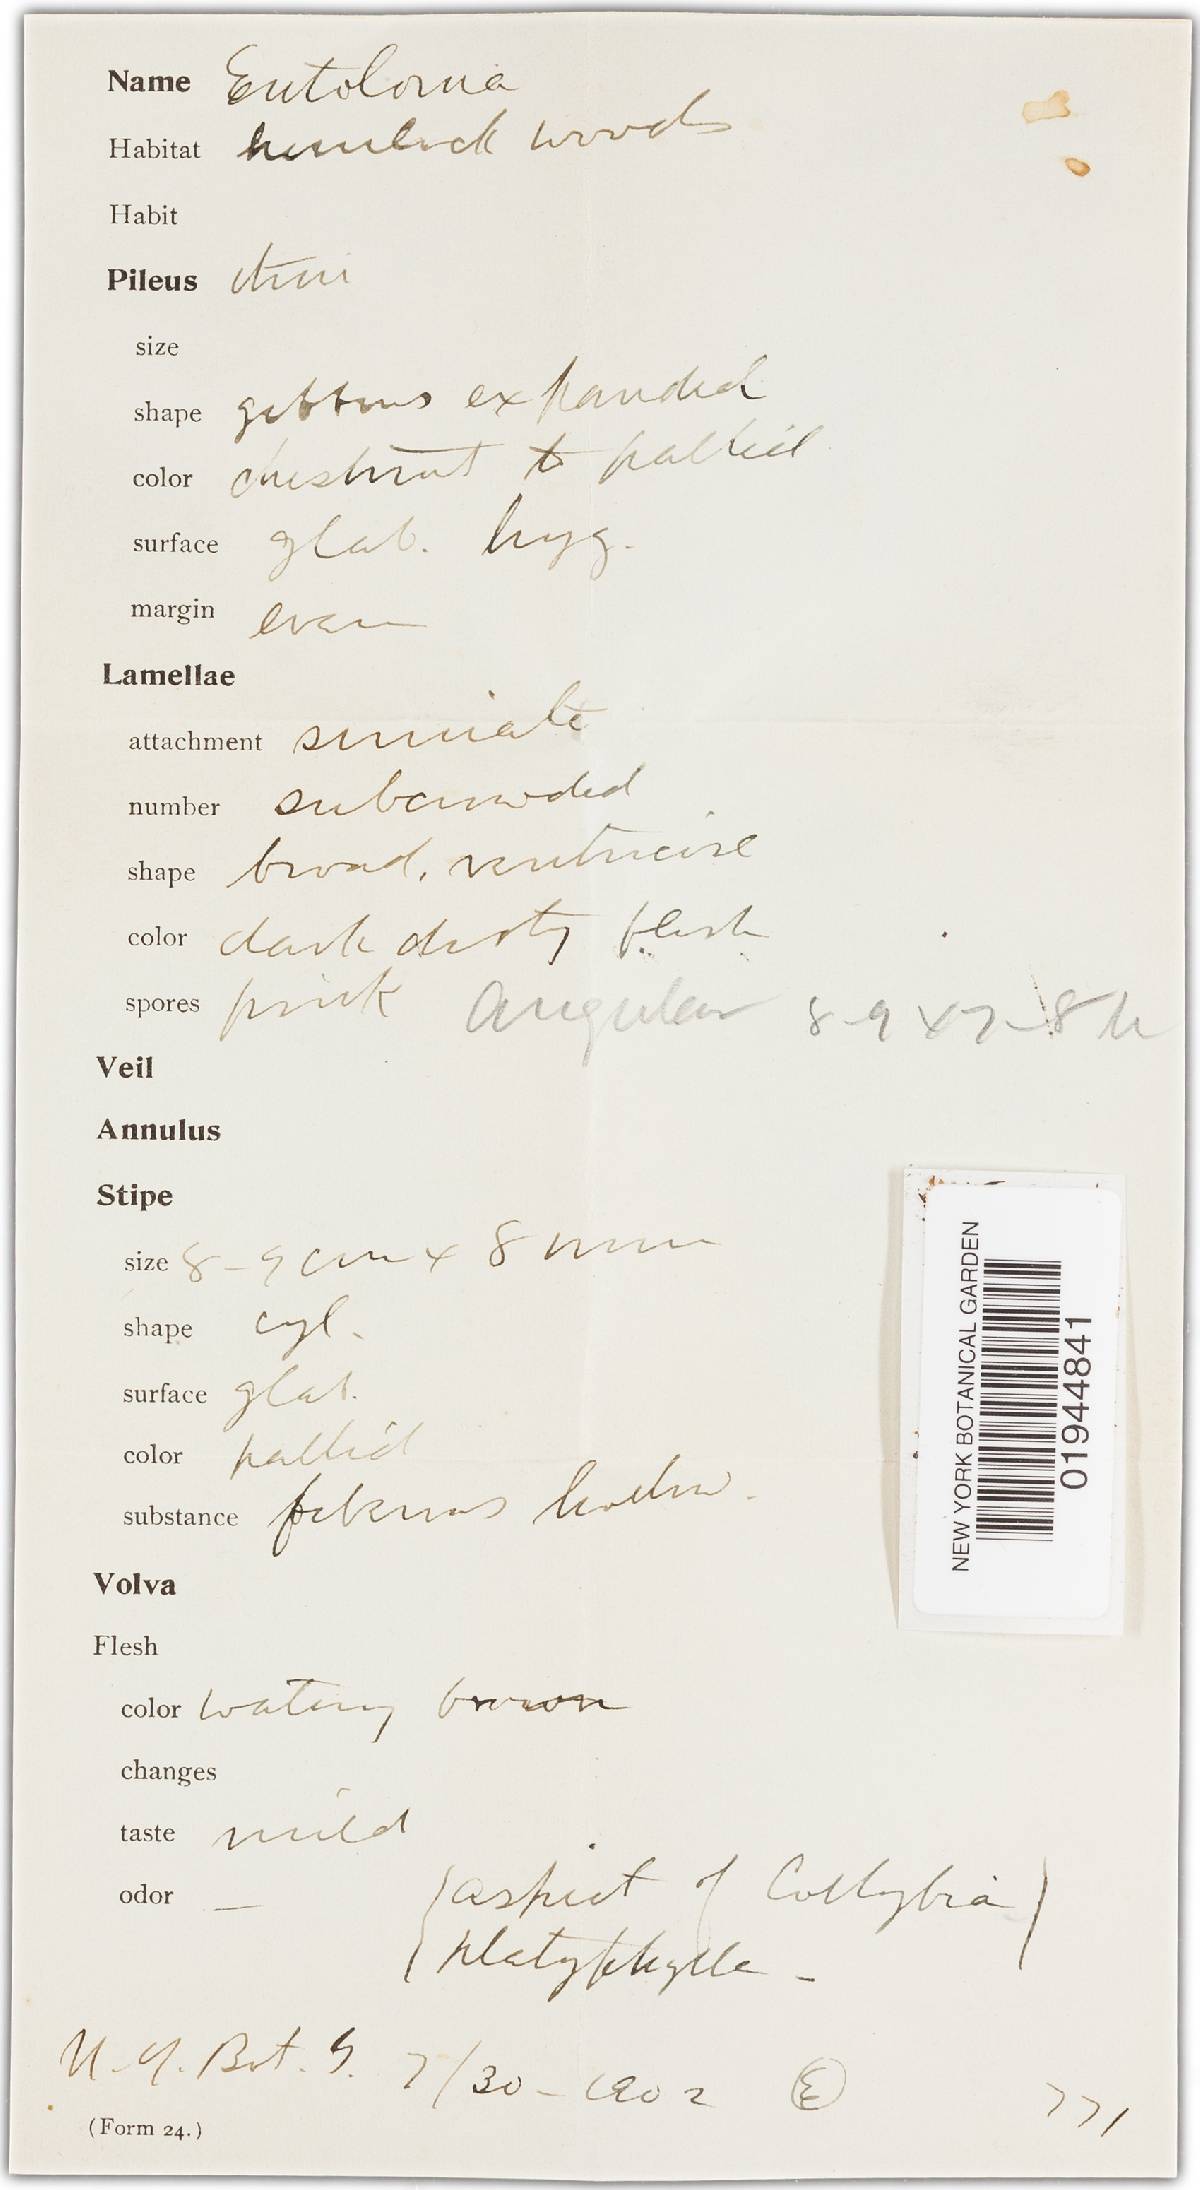 Name Entoloma
Habitat hemlock woods
Habit
Pileus thin
size
shape gibbous expanded
color chestnut to pallid
surface glab. hyg.
margin even
Lamellae
attachment sinuate
number subcrowded
shape broad, ventricose
color dark dirty flesh
spores pink angular 8-9 x 7-8 µ
Veil
Annulus
Stipe
size 8-9 cm x 8 mm
shape cyl.
surface glab.
color pallid
substance fibrous hollow.
Volva
Flesh
color watery brown
changes
taste mild
odor — (aspect of Collybia
platyphylla -)
N.Y. Bot. G. 7/30-1902 Ⓔ 771
(Form 24.)
NEW YORK BOTANICAL GARDEN
01944841